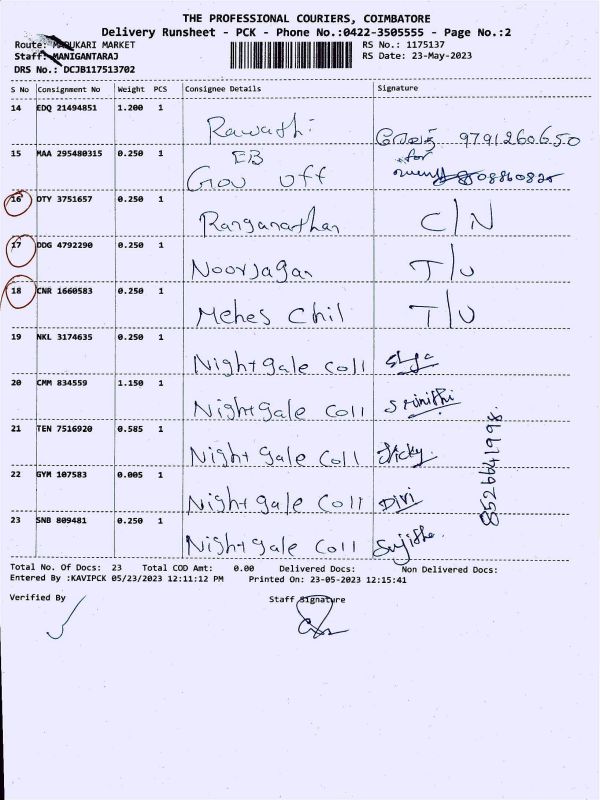 THE PROFESSIONAL COURIERS, COIMBATORE
Delivery Runsheet - PCK - Phone No.:0422-3505555 - Page No.:2
Route: MADUKARI MARKET
RS No.: 1175137
Staff: MANIGANTARAJ
RS Date: 23-May-2023
DRS No.: DCJB117513702
S No Consignment No Weight PCS Consignee Details Signature
14 EDQ 21494851 1.200 1 Rawathi 9791260650
15 MAA 295480315 0.250 1 EB Gov off for
16 DTY 3751657 0.250 1 Ranganathan C/N
17 DDG 4792290 0.250 1 Noorjagan T/U
18 CNR 1660583 0.250 1 Mehes Chil T/U
19 NKL 3174635 0.250 1 Nightgale Coll
20 CMM 834559 1.150 1 Nightgale Coll Srinithi
21 TEN 7516920 0.585 1 Nightgale Coll Vicky
22 GYM 107583 0.005 1 Nightgale Coll Divi
23 SNB 809481 0.250 1 Nightgale Coll Sujitha
8526641998
Total No. Of Docs: 23 Total COD Amt: 0.00 Delivered Docs: Non Delivered Docs:
Entered By :KAVIPCK 05/23/2023 12:11:12 PM Printed On: 23-05-2023 12:15:41
Verified By Staff Signature